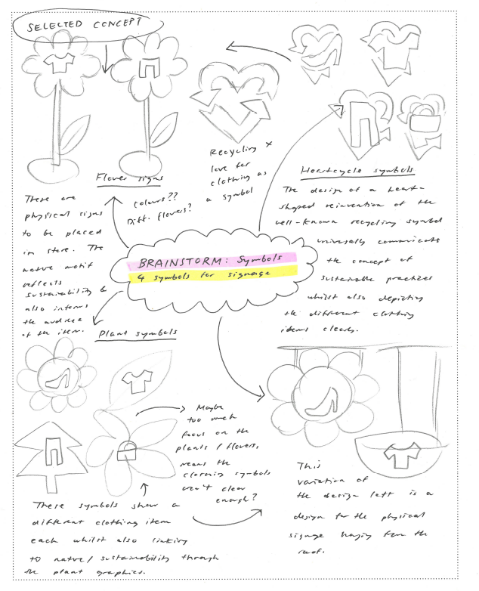 SELECTED CONCEPT
Flower signs
These are
physical signs
to be placed
in store. The
nature motif
reflects
sustainability &
also informs
the audience
of the item.
Colours??
Diff. flowers?
Recycling +
love for
clothing as
a symbol
Heartcycle symbols
The design of a heart-
shaped reinvention of the
well-known recycling symbol
universally communicate
the concept of
sustainable practices
whilst also depicting
the different clothing
items clearly.
BRAINSTORM: Symbols
4 symbols for signage
Plant symbols
Maybe
too much
focus on the
plants / flowers,
means the
clothing symbols
aren't clear
enough?
These symbols show a
different clothing item
each whilst also linking
to nature / sustainability through
the plant graphics.
This
variation of
the design left is a
design for the physical
signage hanging from the
roof.